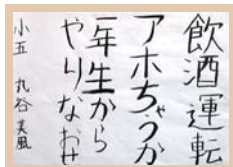 飲酒運転
アホちゃうか
一年生から
やりなおせ
小五 丸谷美風